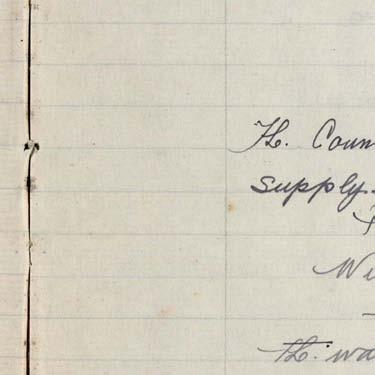 Th. Coun
supply.
Wi
th. wa